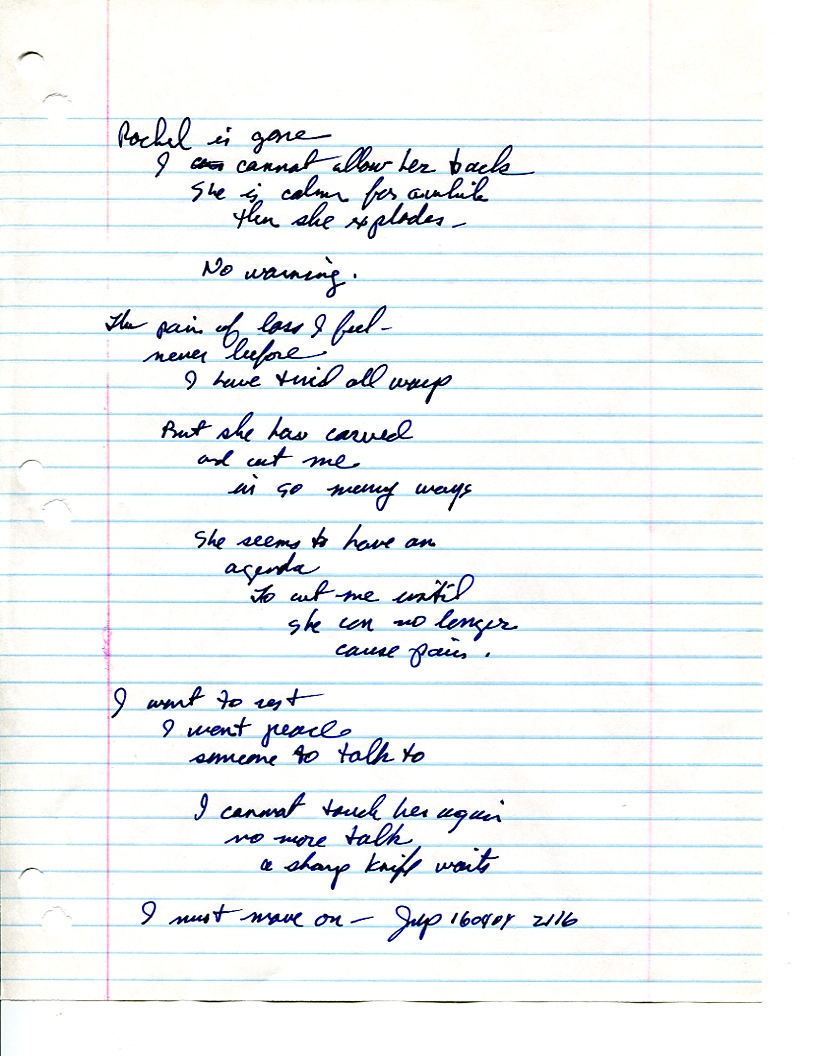 Rachel is gone
I cannot allow her back
She is calm for awhile
then she explodes –
No warning.
The pain of loss I feel –
never before
I have tried all ways
But she has carved
and cut me
in so many ways
She seems to have an
agenda
To cut me until
she can no longer
cause pain.
I want to rest
I want peace
someone to talk to
I cannot touch her again
no more talk
a sharp knife waits
I must move on – 2116